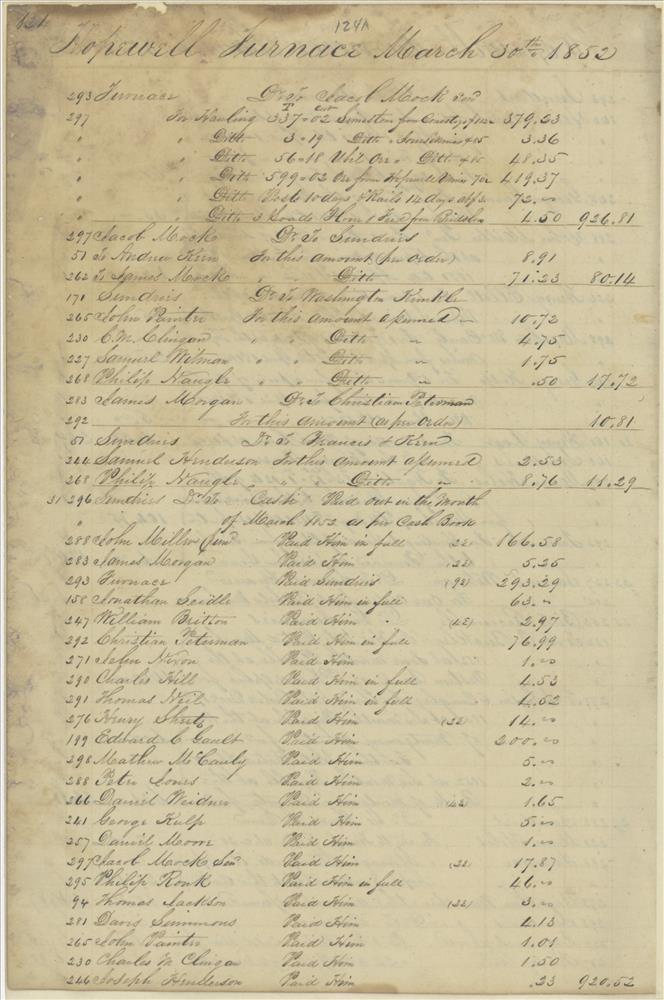 124A
Hopewell Furnace March 30th 1852
293 Furnace Dr To Jacob Mock Sen
297 For Hauling 337=02 Limestone from 379.23
" " Ditto 3=19 Ditto 3.36
" " Ditto 56=18 Ore Ditto 48.35
" " Ditto 599=02 Ore from Hopewell Mine 70c 419.37
" " Ditto Posts 10 days & Rails 14 days at 72.00
" " Ditto 3 Loads from 4.50 926.81
297 Jacob Mock Dr To Sundries
51 To Andrew Kern For this amount (per order) 8.91
262 To James Mock " " Ditto 71.23 80.14
171 Sundries Dr To Washington
265 John Painter For this amount assumed " 10.72
230 C. M. Clingan " " Ditto " 4.75
227 Samuel Witman " " Ditto " 1.75
268 Philip Naugle " " Ditto " .50 17.72
283 James Morgan Dr To Christian Peterman
292 For this amount (as per Order) 10.81
51 Sundries Dr To Frances & Kern
244 Samuel Henderson For this amount assumed 2.53
268 Philip Naugle " " Ditto " 8.76 11.29
31 296 Sundries Dr To Cash Paid out in the Month
" of March 1852 as per Cash Book
288 John Miller Paid Him in full 166.58
283 James Morgan Paid Him 5.25
293 Furnace Paid Sundries 293.29
158 Jonathan Seidle Paid Him in full 63.00
247 William Britton Paid Him 2.97
292 Christian Peterman Paid Him in full 76.99
271 John Nixon Paid Him 1.00
290 Charles Hill Paid Him in full 4.53
291 Thomas Neil Paid Him in full 4.52
276 Henry Sheetz Paid Him 14.00
199 Edward C Gault Paid Him 200.00
298 Mathew McCauly Paid Him 5.00
288 Peter Jones Paid Him 2.00
266 Daniel Weidner Paid Him 1.65
241 George Kulp Paid Him 5.00
257 Daniel Moore Paid Him 1.00
297 Jacob Mock Sen Paid Him 17.87
295 Philip Ronk Paid Him in full 46.00
94 Thomas Jackson Paid Him 3.00
281 Davis Simmons Paid Him 4.13
265 John Painter Paid Him 1.01
230 Charles M Clingan Paid Him 1.50
246 Joseph Henderson Paid Him .23 920.52